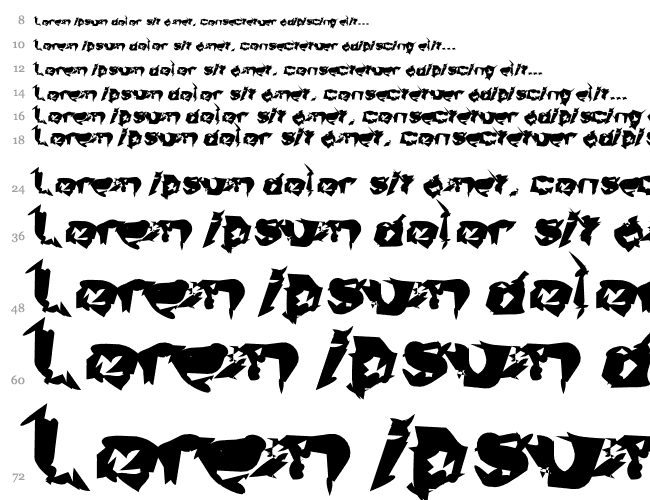 8 Lorem ipsum dolor sit amet, consectetuer adipiscing elit...
10 Lorem ipsum dolor sit amet, consectetuer adipiscing elit...
12 Lorem ipsum dolor sit amet, consectetuer adipiscing elit...
14 Lorem ipsum dolor sit amet, consectetuer adipiscing elit...
16 Lorem ipsum dolor sit amet, consectetuer adipiscing e
18 Lorem ipsum dolor sit amet, consectetuer adipis
24 Lorem ipsum dolor sit amet, consec
36 Lorem ipsum dolor sit a
48 Lorem ipsum dolor
60 Lorem ipsum d
72 Lorem ipsum